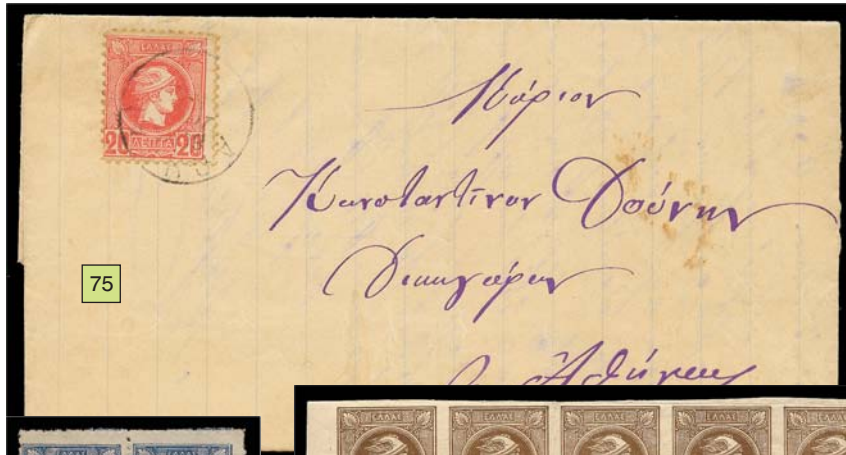 ΕΛΛΑΣ
20 ΛΕΠΤΑ 20
Κύριον
Κωνσταντίνον Δούνην
Δικηγόρον
Ἀθήνας
75
ΕΛΛΑΣ ΕΛΛΑΣ
ΕΛΛΑΣ ΕΛΛΑΣ ΕΛΛΑΣ ΕΛΛΑΣ ΕΛΛΑΣ